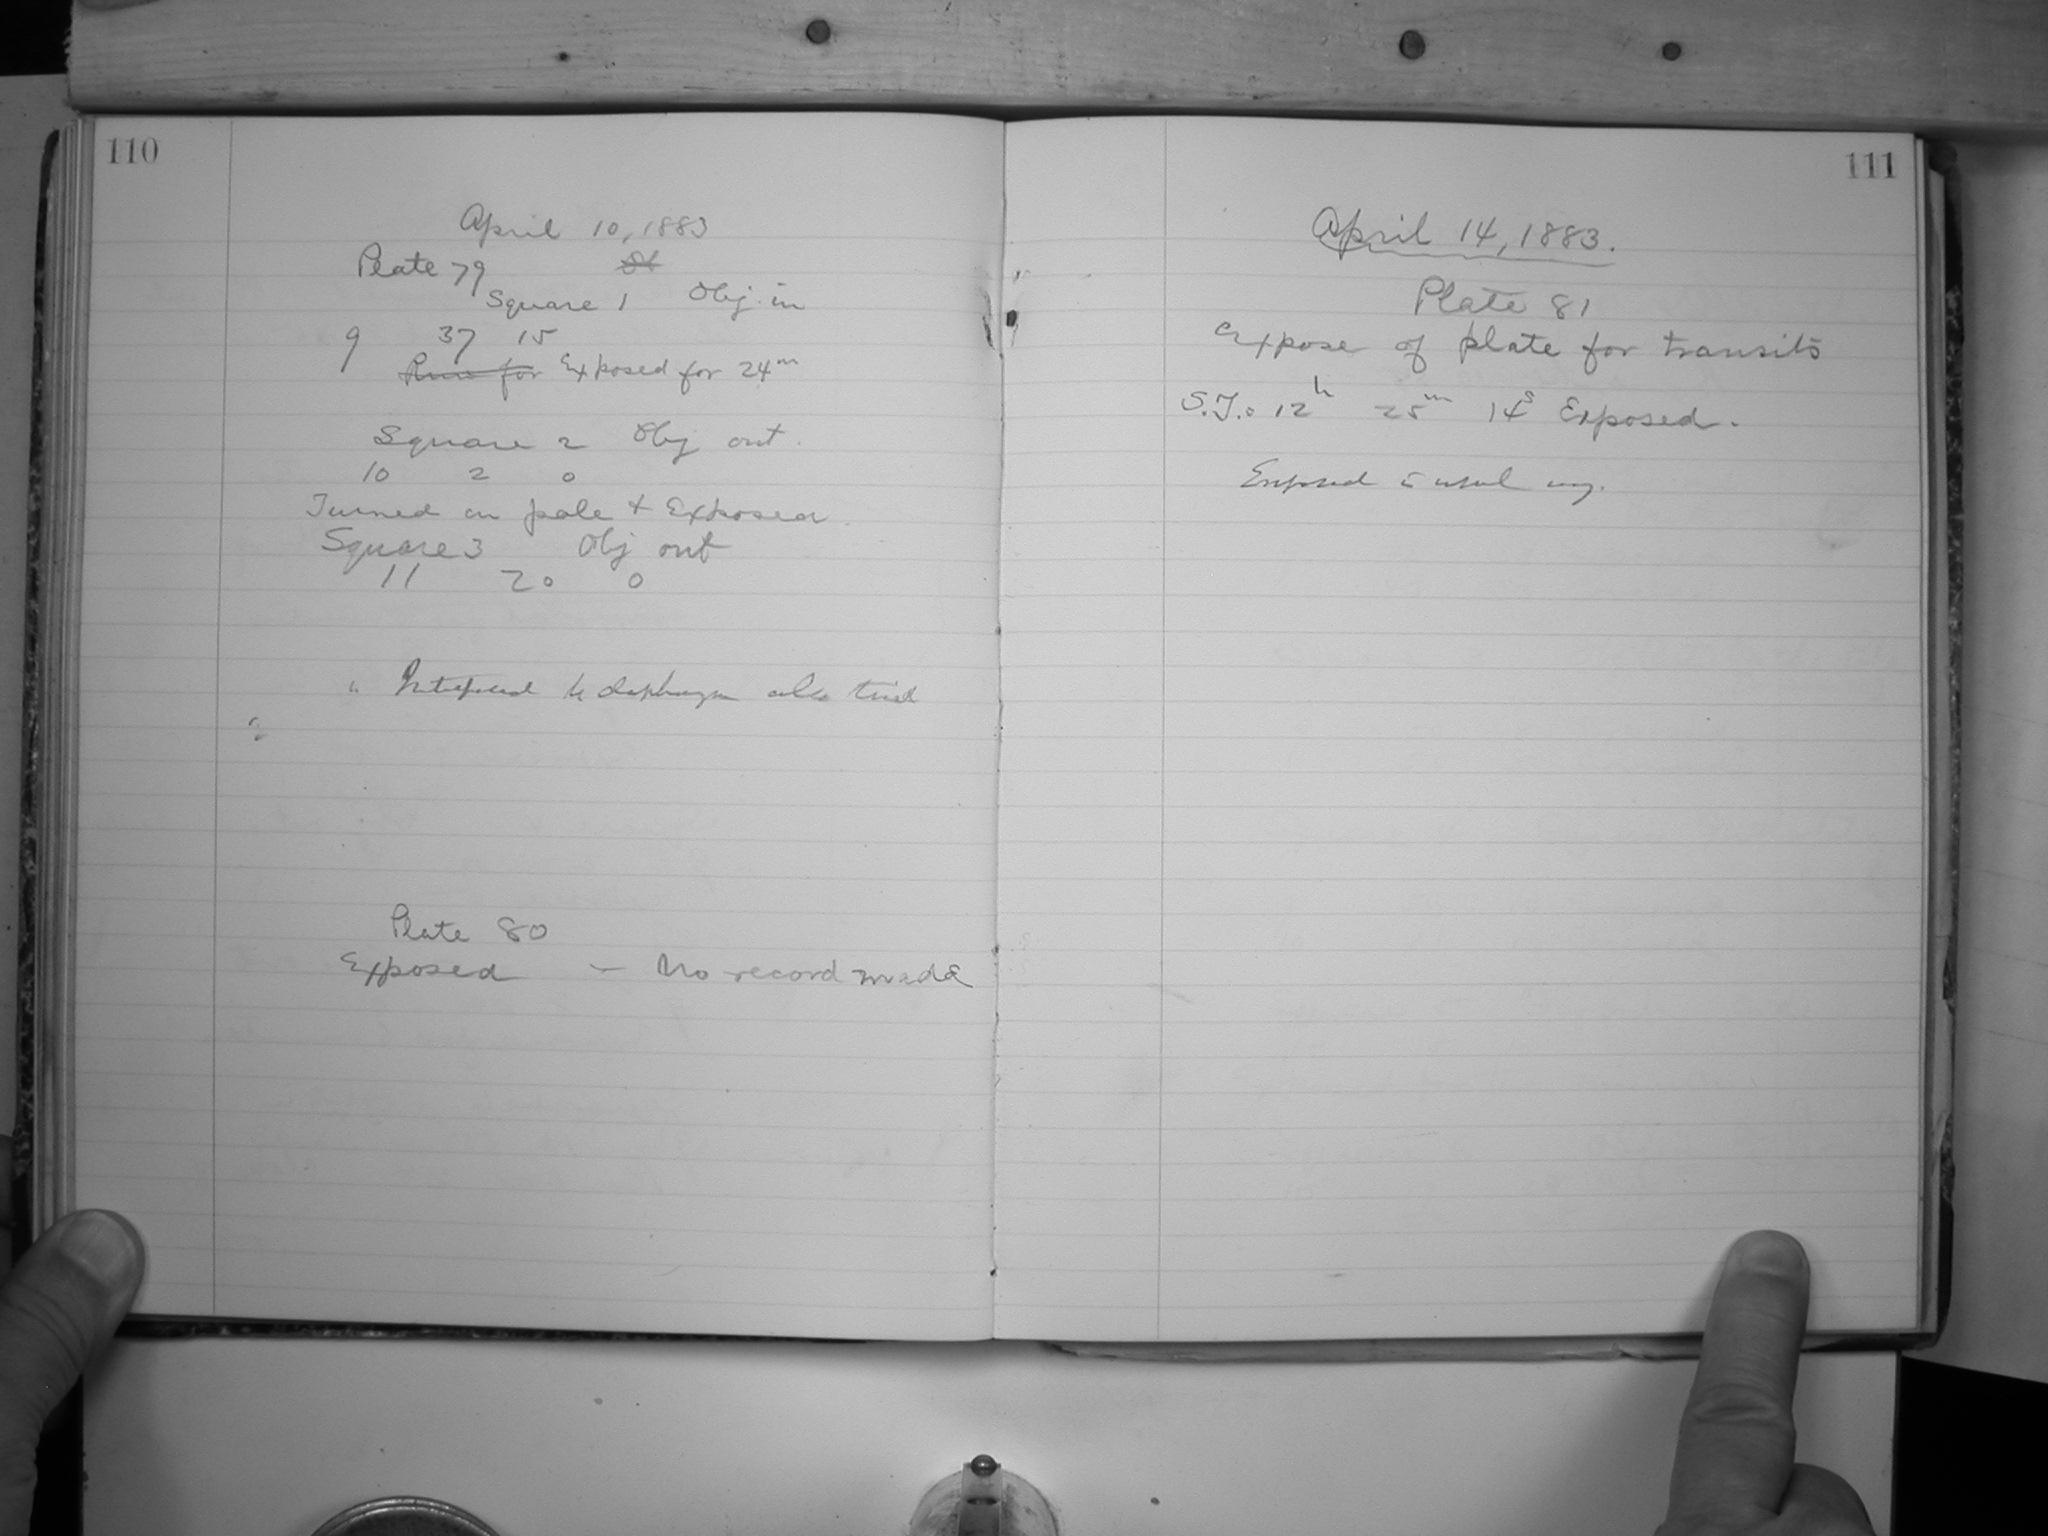 110
April 10, 1883
Plate 79
Square 1 Obj. in
9 37 15
for Exposed for 24m
Square 2 Obj out.
10 2 0
Turned on pole & Exposed.
Square 3 Obj out
11 20 0
diaphragm also tried
Plate 80
Exposed – No record made
111
April 14, 1883.
Plate 81
Expose of plate for transits
S.T.: 12h 25m 14s Exposed.
Exposed in usual way.